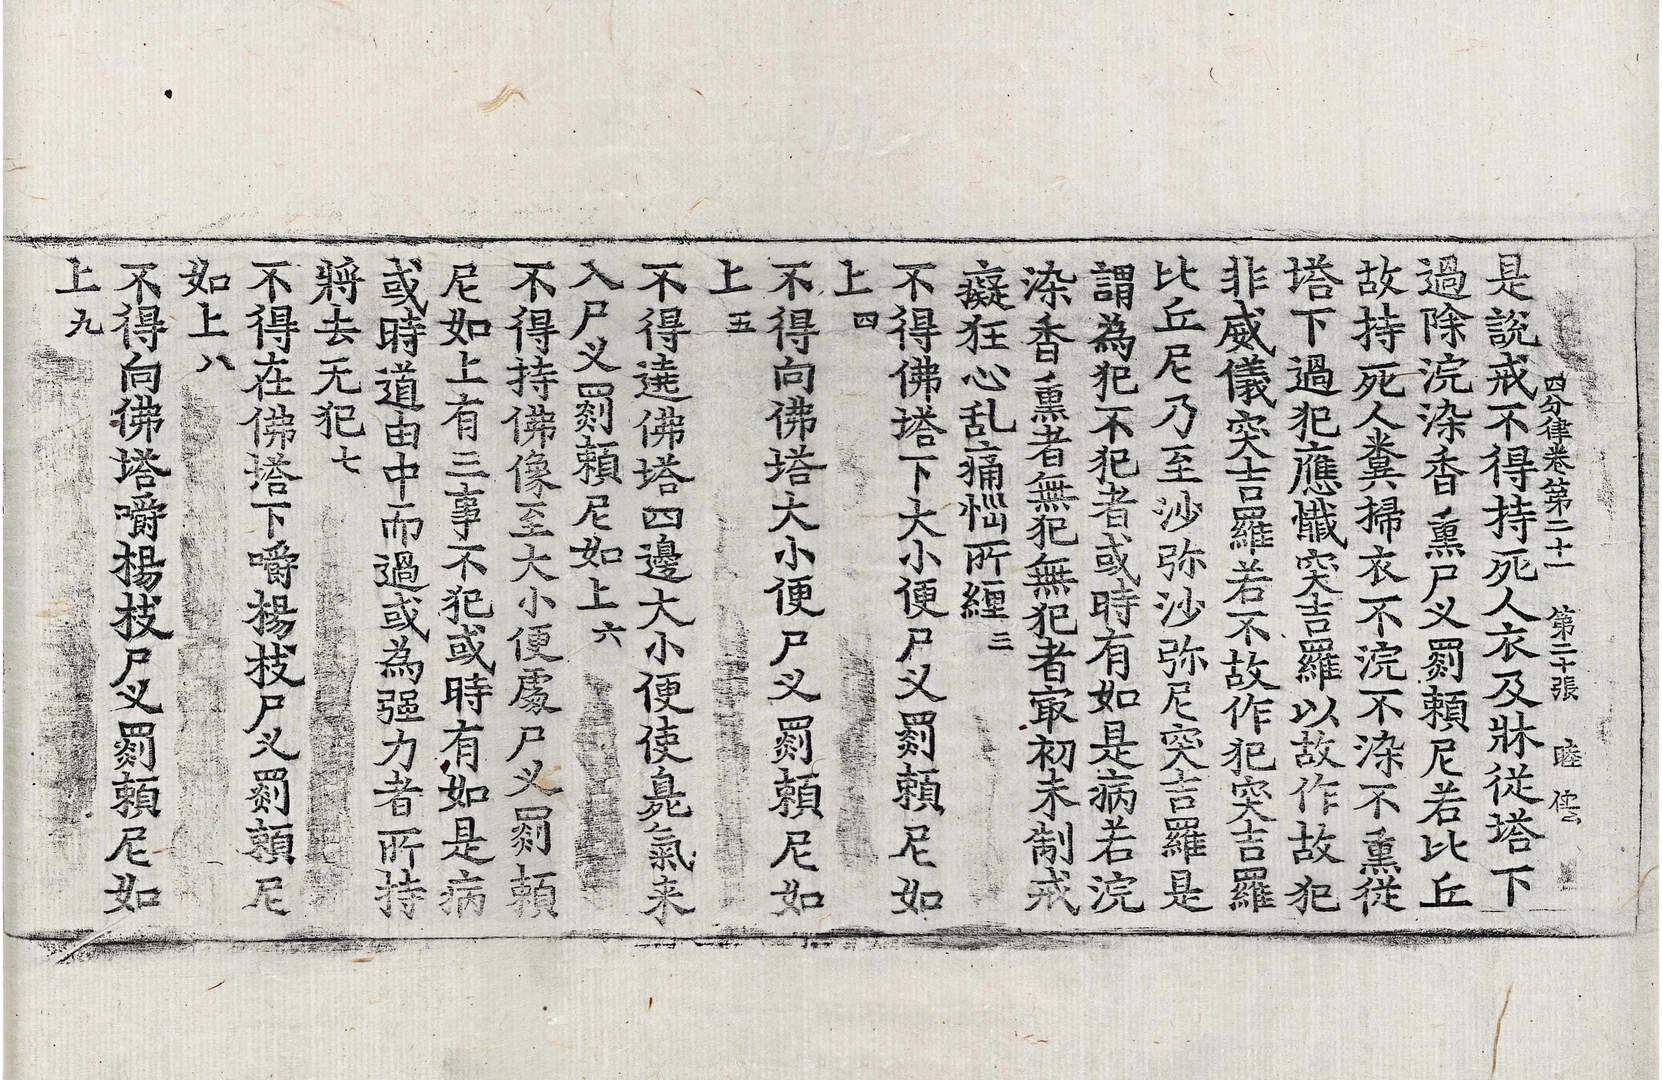 四分律卷第二十一 第二十張 睦
是說戒不得持死人衣及牀從塔下
過除浣染香熏尸叉罽賴尼若比丘
故持死人糞掃衣不浣不染不熏從
塔下過犯應懺突吉羅以故作故犯
非威儀突吉羅若不故作犯突吉羅
比丘尼乃至沙弥沙弥尼突吉羅是
謂為犯不犯者或時有如是病若浣
染香熏者無犯無犯者㝡初未制戒
癡狂心乱痛惱所纏三
不得佛塔下大小便尸叉罽賴尼如
上四
不得向佛塔大小便尸叉罽賴尼如
上五
不得遶佛塔四邊大小便使臭氣来
入尸叉罽賴尼如上六
不得持佛像至大小便處尸叉罽賴
尼如上有三事不犯或時有如是病
或時道由中而過或為强力者所持
將去无犯七
不得在佛塔下嚼楊枝尸叉罽賴尼
如上八
不得向佛塔嚼楊枝尸叉罽賴尼如
上九